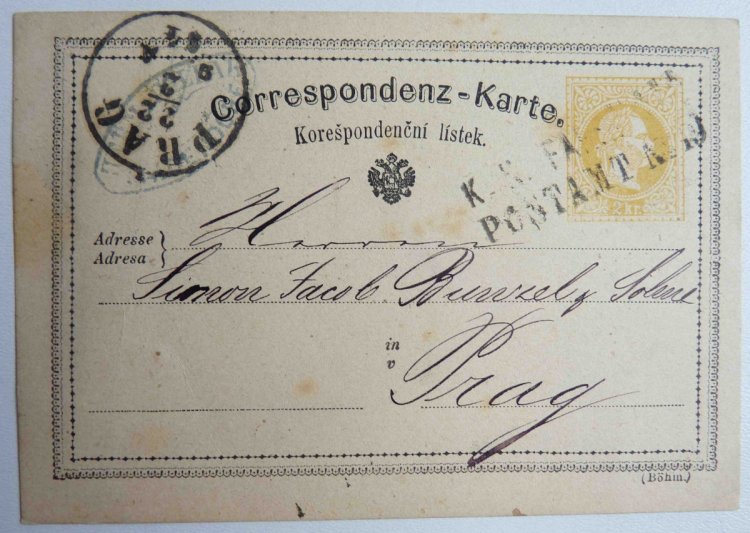 PRAG
Correspondenz-Karte.
Korešpondenční lístek.
K. K. FA
POSTAMT
2 Kr.
Herren
Adresse
Adresa
Simon Jacob Bunzel & Söhne
in
v
Prag
(Böhm.)